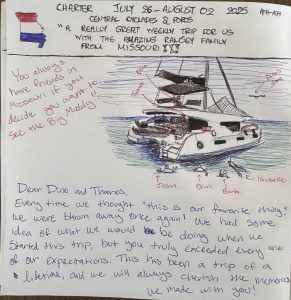 CHARTER JULY 26-AUGUST 02 2025
CENTRAL CYCLADES & POROS
"A REALLY GREAT WEEKLY TRIP FOR US
WITH THE AMAZING RAMSEY FAMILY
FROM MISSOURI!!!
You always
have friends in
Missouri if you
decide you want to
see the Big Muddy!
Jason
Owen
Barb
Isabelle
Dear Dino and Thanos,
Every time we thought "this is our favorite thing,"
we were blown away once again! We had some
idea of what we would be doing when we
started this trip, but you truly exceeded every one
of our expectations. This has been a trip of a
lifetime, and we will always cherish the memories
we made with you!